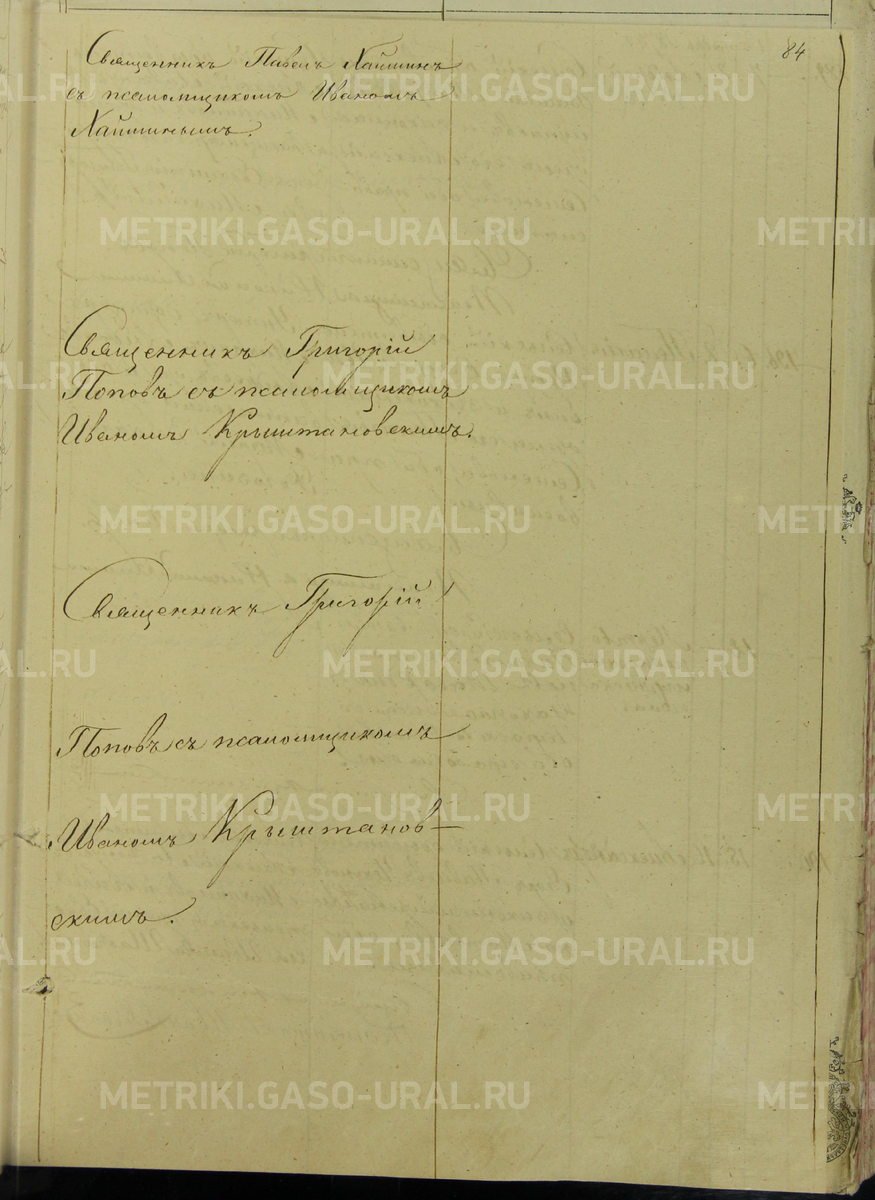 84
Священникъ Павелъ Хаймин
съ псаломщикомъ Иваномъ
Хайминымъ.
Священникъ Григорій
Поповъ съ псаломщикомъ
Иваномъ Крыштановскимъ.
Священникъ Григорій
Поповъ съ псаломщикомъ
Иваномъ Крыштанов-
скимъ.
METRIKI.GASO-URAL.RU